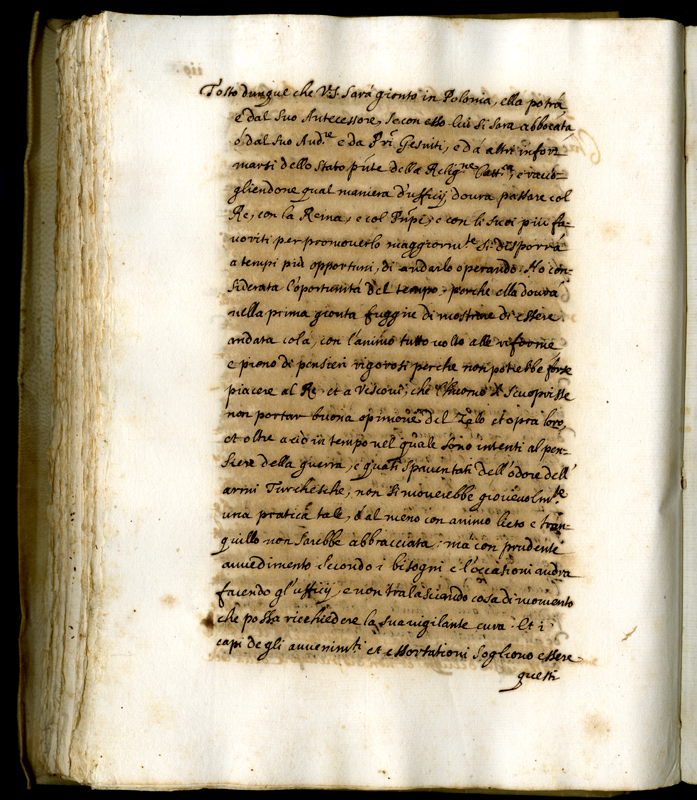 Tosto dunque che V.S. sarà gionto in Polonia, ella potrà
e dal suo Antecessore, se con esso lui si sarà abboccata
ò dal suo Aud.re e da P.ri Gesuiti, e da altri infor-
marsi dello stato p̃nte della Relig.ne Catt.ca, e racco-
gliendone qual maniera d'ufficij dourà passare col
Re, con la Reina, e col Prñpe, e con li suoi più fa-
uoriti per promouerlo maggiorm.te si disporrà
a tempi più opportuni, di andarlo operando. Ho con-
siderata l'oportunità del tempo, perche ella dourà
nella prima gionta fuggire di mostrare di essere
andata colà, con l'animo tutto volto alle riforme
e pieno di pensieri rigorosi perche non potrebbe forse
piacere al Re, et a Vescoui, che l'huomo si scuoprisse
non portar buona opinione del Zelo et opra loro,
et oltre a ciò in tempo nel quale sono intenti al pen-
siere della guerra, e quasi spauentati dell'odore dell'
armi Turchesche, non si mouerebbe gioueuolm.te
una pratica tale, ò al meno con animo lieto e tran-
quillo non sarebbe abbracciata: mà con prudente
auuedimento secondo i bisogni e l'occasioni andrà
facendo gl'ufficij, e non tralasciando cosa di momento
che possa richiedere la sua vigilante cura. Et i
capi de gli auuenim.ti et essortationi sogliono essere
questi